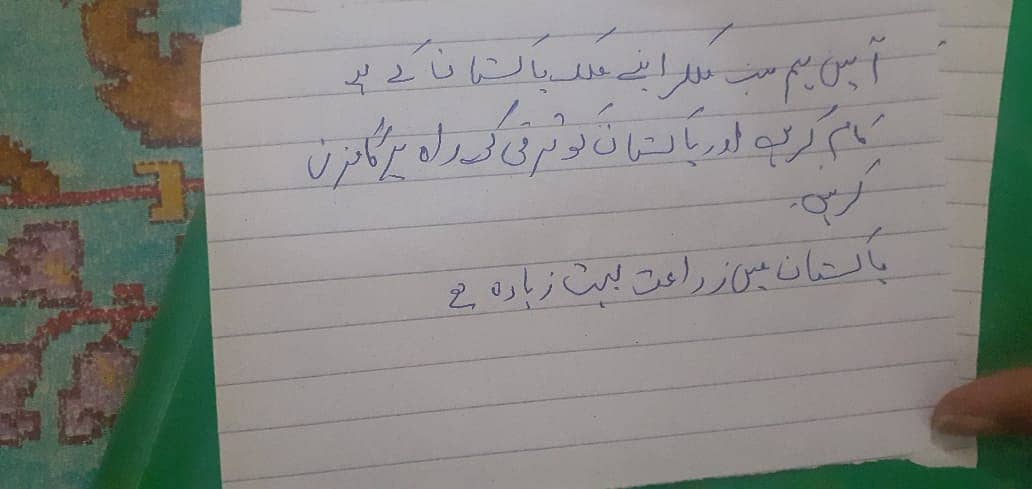 آیں ہم سب ملکر اپنے ملک پاکستان کے لیے
کام کریں اور پاکستان کو ترقی کی راہ پر گامزن
کریں۔
پاکستان میں زراعت بہت زیادہ ہے